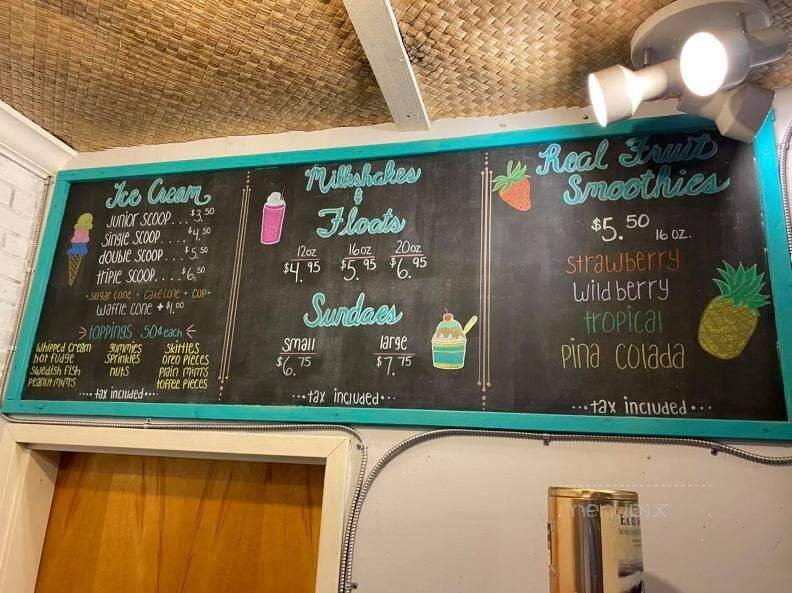 Ice Cream
Junior SCOOP... $3.50
Single SCOOP.... $4.50
double SCOOP... $5.50
triple SCOOP.... $6.50
• sugar cone • cake cone • cup •
Waffle cone + $1.00
toppings 50¢ each
Whipped cream
hot fudge
Swedish fish
Peanut m&m's
gummies
Sprinkles
nuts
Skittles
Oreo Pieces
Plain m&m's
toffee Pieces
....tax included...
Milkshakes
&
Floats
12oz 16oz 20oz
$4.95 $5.95 $6.95
Sundaes
Small large
$6.75 $7.75
...tax included...
Real Fruit
Smoothies
$5.50 16 oz.
Strawberry
Wild berry
tropical
Pina Colada
...tax included...
menupix